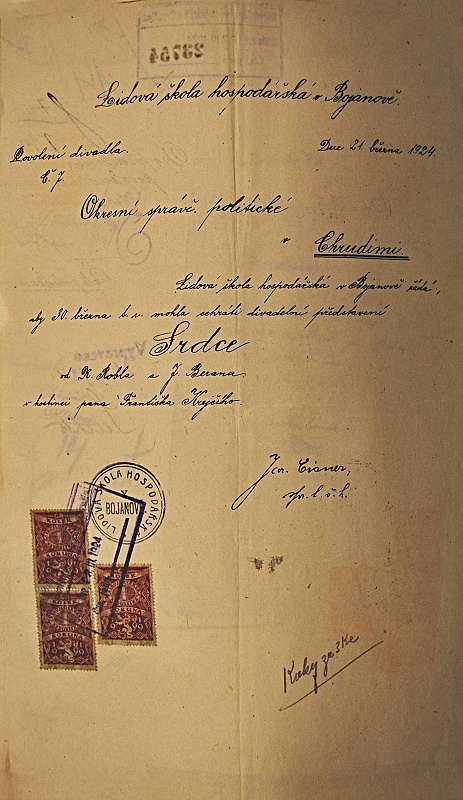 Lidová škola hospodářská v Bojanově.
Povolení divadla.
Dne 21. března 1924.
Č. J.
Okresní správě politické
v
Chrudimi.
Lidová škola hospodářská v Bojanově žádá,
aby 30. března t. r. mohla sehráti divadelní představení
Srdce
od R. Kobla a J. Berana
v hostinci pana Františka Krejčího.
Jar. Cisner,
spr. l. š. h.
LIDOVÁ ŠKOLA HOSPODÁŘSK
V
BOJANOVĚ
KOLEK
1
KORUNA
KOLEK
1
KORUNA
KOLEK
KORUNA
1924
23754